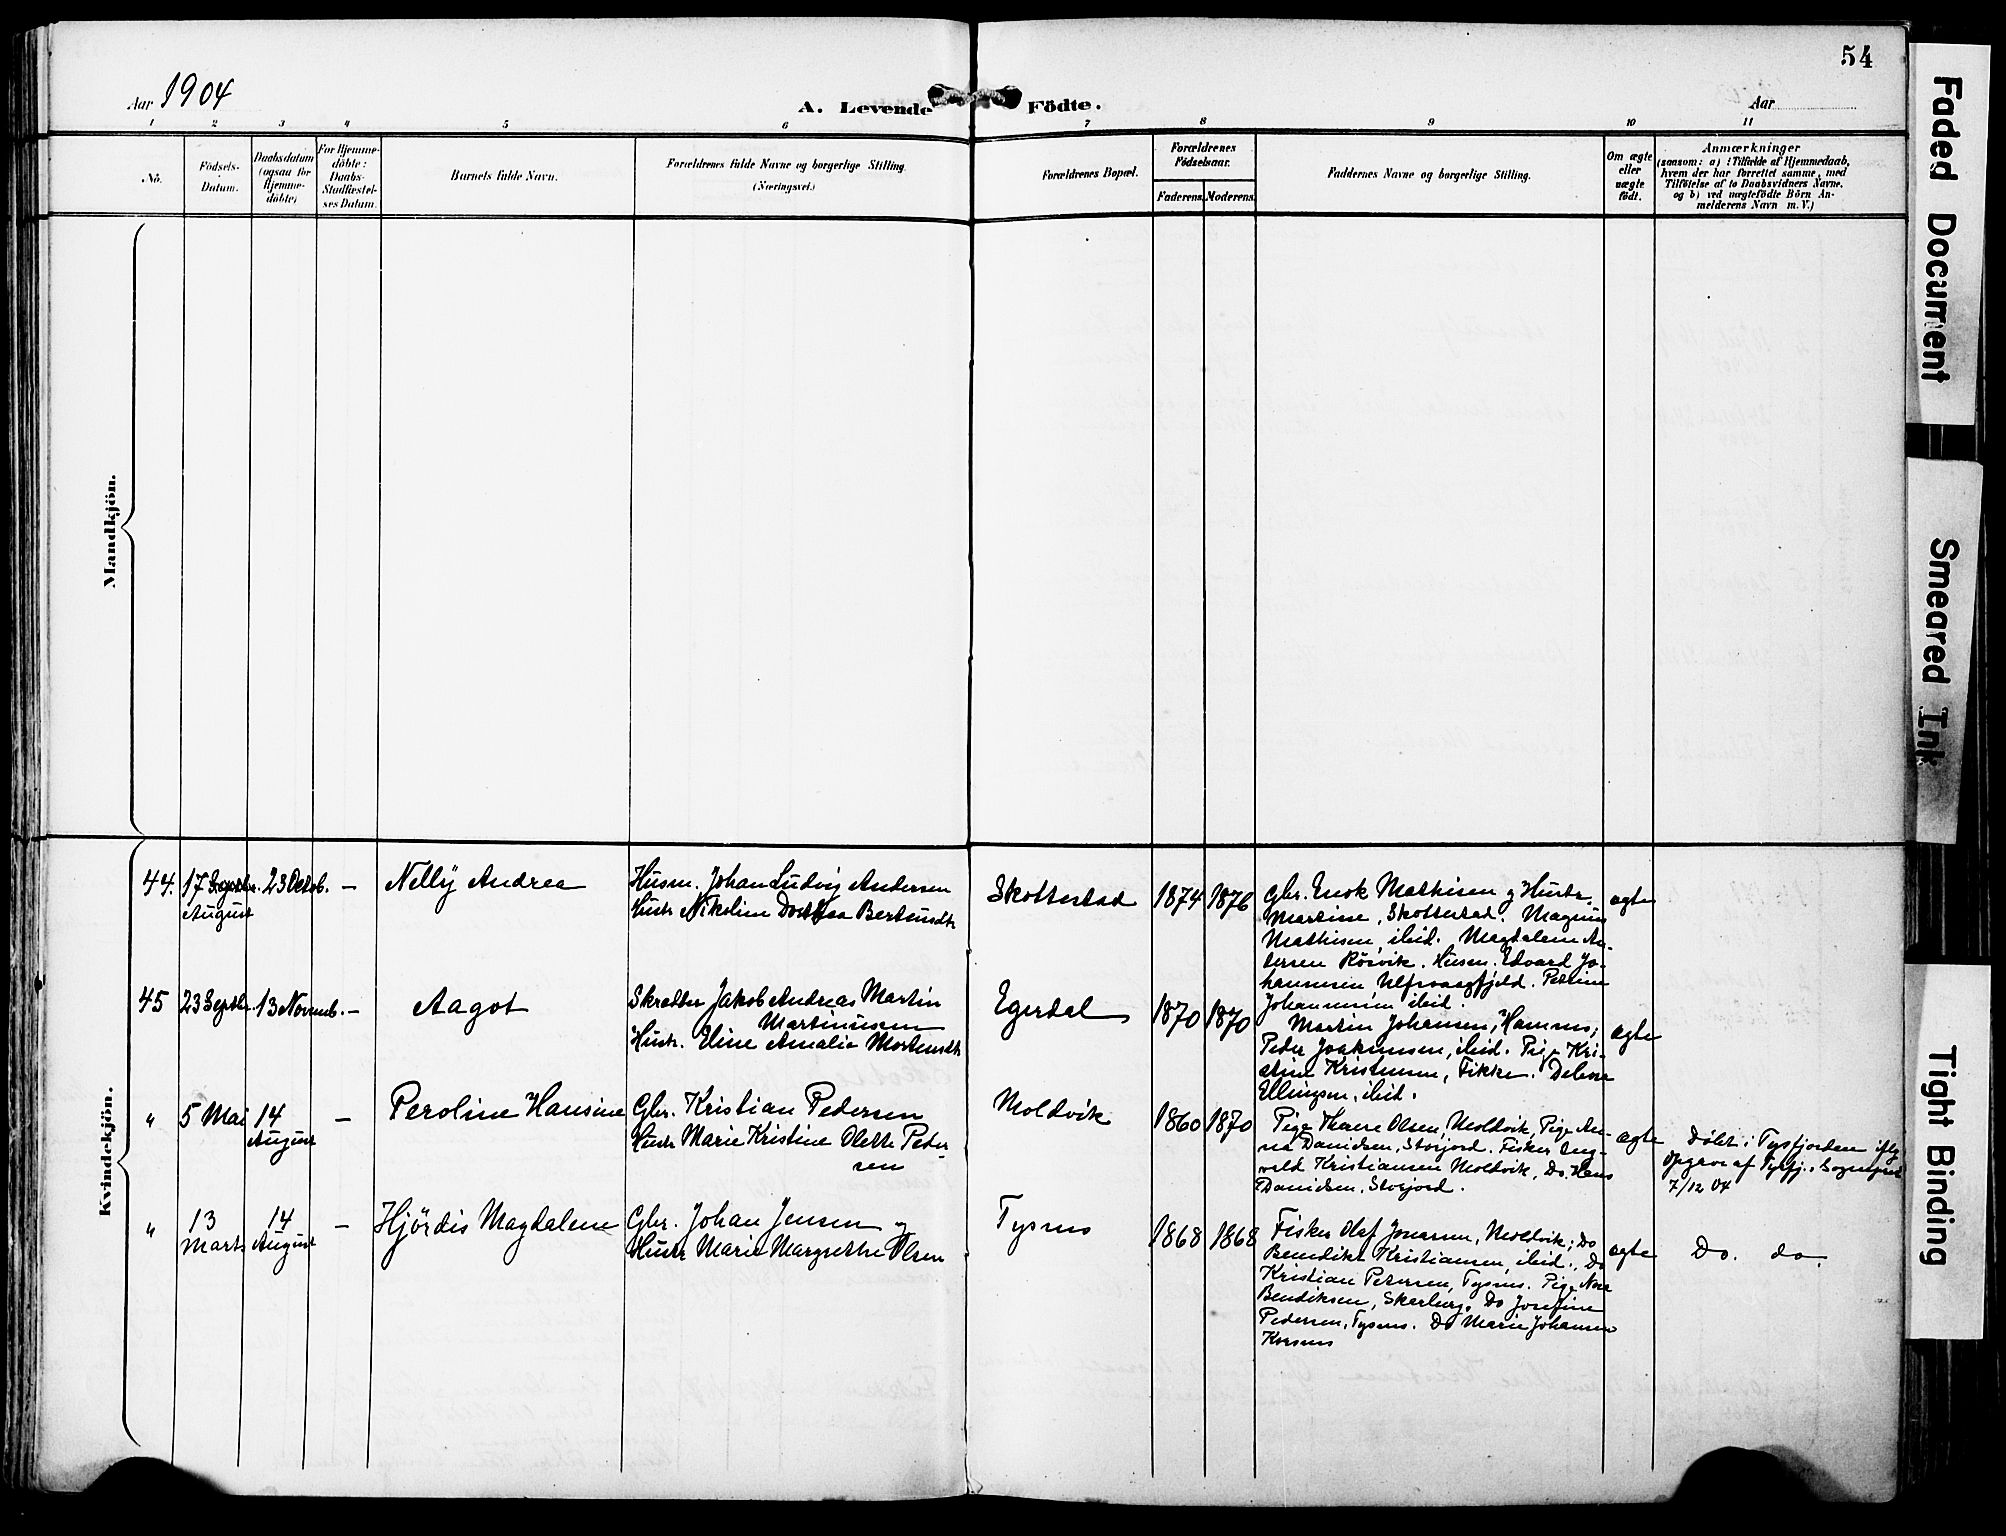 54
Aar 1904
A. Levende Födte.
Aar
1 2 3 4 5 6 7 8 9 10 11
No.
Födsels-
Datum.
Daabsdatum
(ogsaa for
Hjemme-
döbte)
For Hjemme-
döbte:
Daabs-
Stadfæstel-
ses Datum.
Barnets fulde Navn.
Forældrenes fulde Navne og borgerlige Stilling
(Næringsvei.)
Forældrenes Bopæl.
Forældrenes
Födselsaar.
Faderens. Moderens.
Faddernes Navne og borgerlige Stilling.
Om ægte
eller
uægte
födt.
Anmærkninger
(saasom: a) i Tilfælde af Hjemmedaab,
hvem der har forrettet samme, med
Tilföielse af to Daabsvidners Navne.
og b) ved uægtefödte Börn An-
melderens Navn m. V.)
Mandkjön.
Kvindekjön.
44. 17 Septbr.
August
23 Oktob. —
Nelly Andrea
Husm. Johan Ludvig Andersen
Hustr Nikoline Dorthea Berteusdtr
Skottestad
1874 1876
Gbr. Enok Mathisen og Hustr.
Martine, Skottestad. Magnus
Mathisen, ibid. Magdalene An-
dersen Rösvik. Husm. Edvard Jo-
hannesen Ulfsvaagfjeld. Petrine
Johannesen ibid.
ægte
45 23 Septbr. 13 Novemb. —
Aagot
Skrædder Jakob Andreas Martin
Martinussen
Hustr. Eline Amalie Mortensdtr
Egerdal
1870 1870
Martin Johansen, Hamnes;
Peder Joakimsen, ibid. Pige Kri-
stine Kristensen, Fikke. Delene
Ellingsen, ibid.
ægte
" 5 Mai 14
August
—
Peroline Hansine
Gbr. Kristian Pedersen
Hustr Marie Kristine Olette Peder-
sen
Moldvik
1860 1870
Pige Olsen, Moldvik, Pige An-
na Danielsen, Storjord. Fisker Ing-
vald Kristiansen Moldvik, Do. Hans
Danielsen, Storjord.
ægte
Döbt i Tysfjorden iflg
Opgave af Tysfj. Sognepræst
7/12 04
" 13
Marts
14
August
—
Hjördis Magdalene
Gbr. Johan Jensen og
Hustr Marie Margrethe Olsen
Tysnes
1868 1868
Fisker Olaf Jonassen, Moldvik; Do
Benedikt Kristiansen, ibid., Do
Kristian Petersen, Tysnes. Pige
Bendiksen, Skarberg. Do Josefine
Pedersen, Tysnes. Do Marie Johansen
Korsnes
ægte
Do. do.
Faded Document
Smeared Ink
Tight Binding